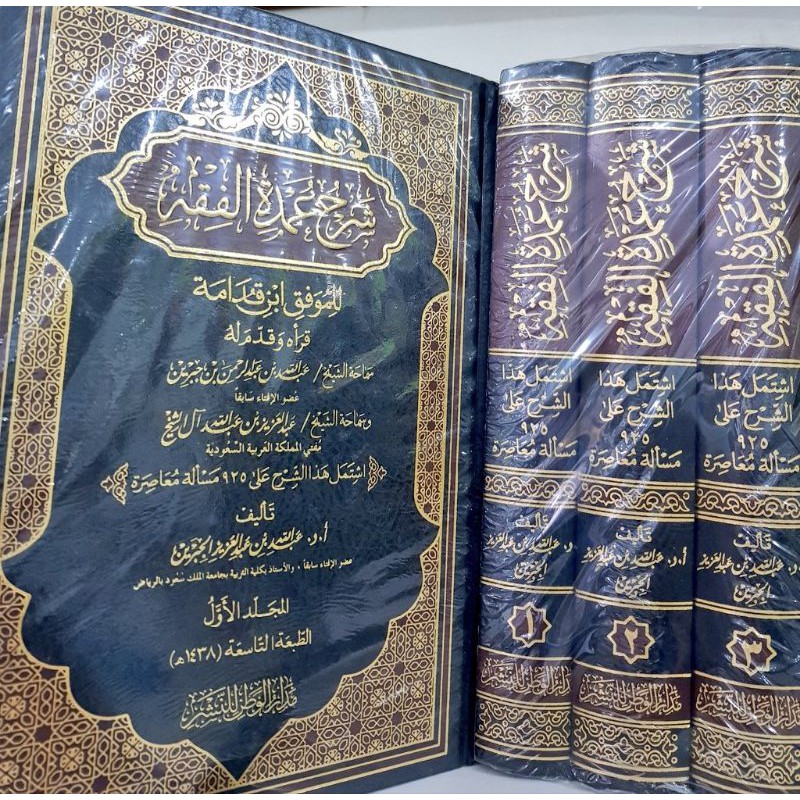 شرح عمدة الفقه
للموفق ابن قدامة
قرأه وقدم له
سماحة الشيخ / عبدالله بن عبدالرحمن بن جبرين
عضو الإفتاء سابقاً
وسماحة الشيخ / عبدالعزيز بن عبدالله آل الشيخ
مفتي المملكة العربية السعودية
اشتمل هذا الشرح على ٩٢٥ مسألة معاصرة
تأليف
أ.د. عبدالله بن عبدالعزيز الجبرين
عضو الإفتاء سابقاً، والأستاذ بكلية التربية بجامعة الملك سعود بالرياض
المجلد الأول
الطبعة التاسعة (١٤٣٨هـ)
مدار الوطن للنشر
شرح عمدة الفقه
اشتمل هذا
الشرح على
٩٢٥
مسألة معاصرة
تأليف
د. عبدالله بن عبدالعزيز
الجبرين
١
مدار الوطن للنشر
شرح عمدة الفقه
اشتمل هذا
الشرح على
٩٢٥
مسألة معاصرة
تأليف
أ.د. عبدالله بن عبدالعزيز
الجبرين
٢
مدار الوطن للنشر
شرح عمدة الفقه
اشتمل هذا
الشرح على
٩٢٥
مسألة معاصرة
تأليف
أ.د. عبدالله بن عبدالعزيز
الجبرين
٣
مدار الوطن للنشر